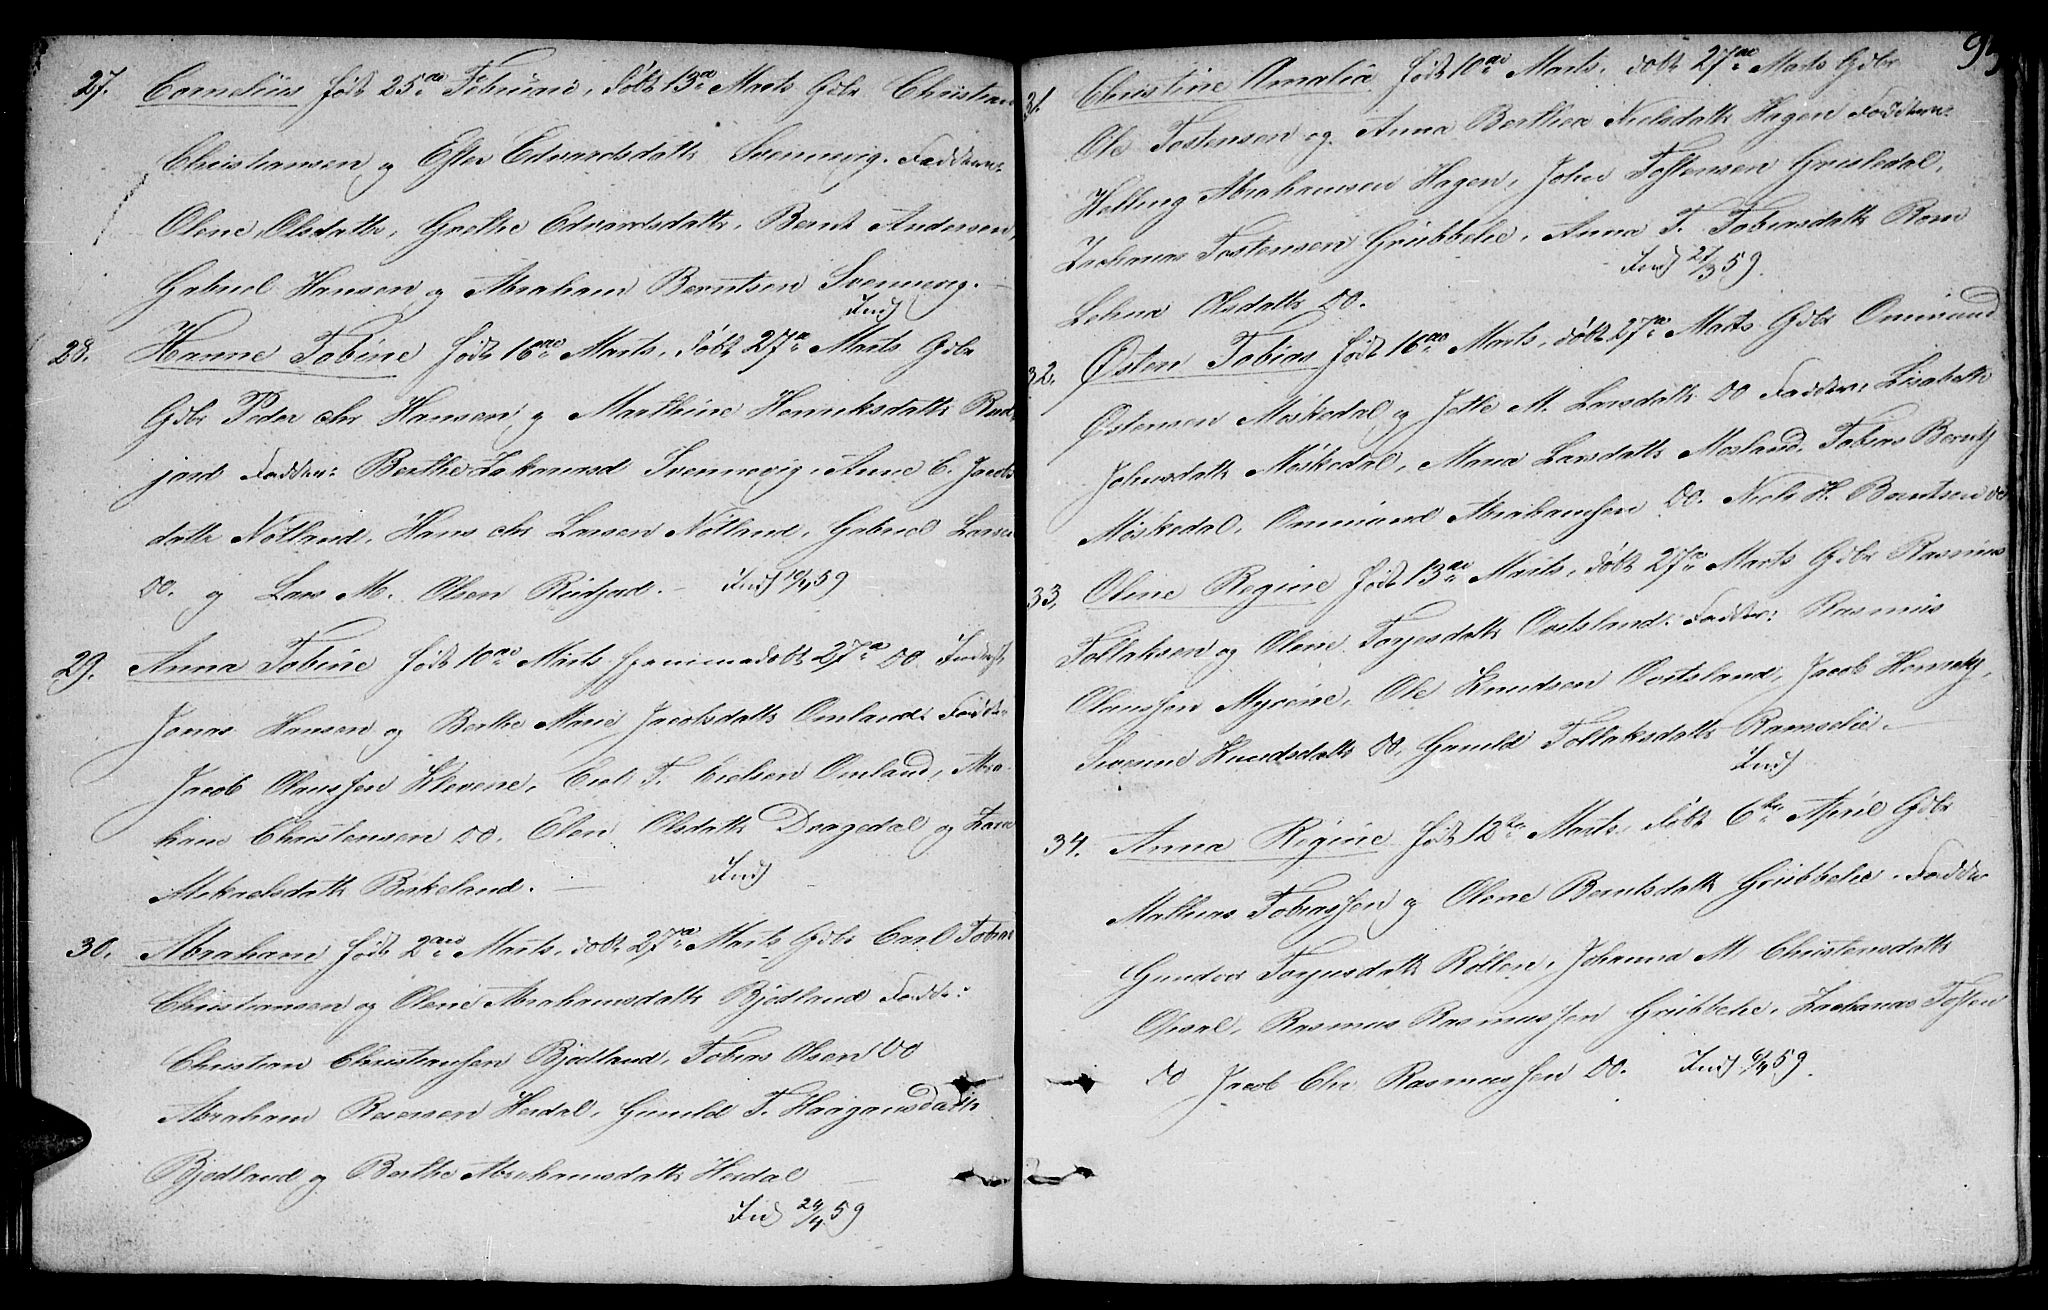 27. Cornelius født 25de Februari, døbt 13de Marts Gdbr Christian
Christiansen og Ester Edvardsdatter Svennevig. Faddere:
Olene Olsdatter, Grethe Edvardsdatter, Bernt Andersen,
Gabriel Hansen og Abraham Berntsen Svennevig. —
Inds
28. Hanne Tobine født 16de Marts, døbt 27de Marts Gdbr
Gdbr Peder chr Hansen og Marthine Henriksdatter
jord Faddere: Berthe Svennevig, Anne C. Jacobs
datter Nøtland, Hans chr Larsen Nøtland, Gabriel Larsen
do. og Lars M. Olsen — Inds 10/4 59
29. Anna Tobine født 10de Marts hjemmedøbt 27de do. Inderst
Jonas Hansen og Berthe Marie Jacobsdatter Omland: Faddere:
Jacob Olaussen Klevene, T. Nielsen Omland, Abra-
ham Christensen do. Elen Olsdatter Dragedal og
Mikaelsdatter Birkeland. — Inds
30. Abraham født 2den Marts, døbt 27de Marts Gdbr Carl Tobias
Christiansen og Olene Abrahamsdatter Bjodland Faddere:
Christian Christiansen Bjodland, Tobias Olsen do
Abraham Reiersen Herdal, Gunild T. Haagansdatter
Bjodland og Berthe Abrahamsdatter Herdal —
Ind 24/4 59
95
31. Christine Amalia født 10de Marts, døbt 27de Marts Gdbr
Ole Tostensen og Anna Berthea Nielsdatter Hagen Faddere:
Helling Abrahamsen Hagen, John Tostensen Grisledal,
Zacharias Tostensen Grubbelie, Anna T. Tobiasdatter Rom
Inds 27/3 59.
Lehna Olsdatter do.
32. Østen Tobias født 16de Marts, døbt 27de Marts Gdbr Ommund
Østensen Moskedal og Jetle M. Larsdatter do Faddere: Lisabeth
Johnsdatter Møskedal, Maria Larsdatter Mosland, Tobias Bernts
Møskedal, Ommund Abrahamsen do. Niels H. Berntsen do
33. Oline Regine født 13de Marts, døbt 27de Marts Gdbr Rasmus
Tollaksen og Olene Torjesdatter Ovitsland: Faddere: Rasmus
Olaussen Myrene, Ole Knudsen Ovitsland, Jacob
Knudsdatter do, Gunild Tollaksdatter Ramselie. —
Inds
34. Anna Regine født 12te Marts, døbt 6te April Gdbr
Mathias Tobiassen og Olene Berntsdatter Grubbelie. Faddere
Gundvor Torjusdatter Røllen, Johanna M Christensdatter
Opsal, Rasmus Rasmussen Grubbelie, Zacharias Tosten
do Jacob Chr Rasmussen do. Inds 6/4 59.